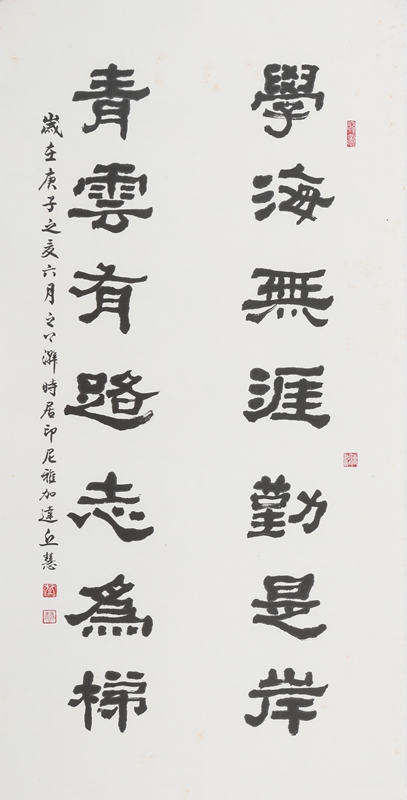 學海無涯勤是岸
青雲有路志為梯
歲在庚子之夏六月之上澣時居印尼雅加達丘慧